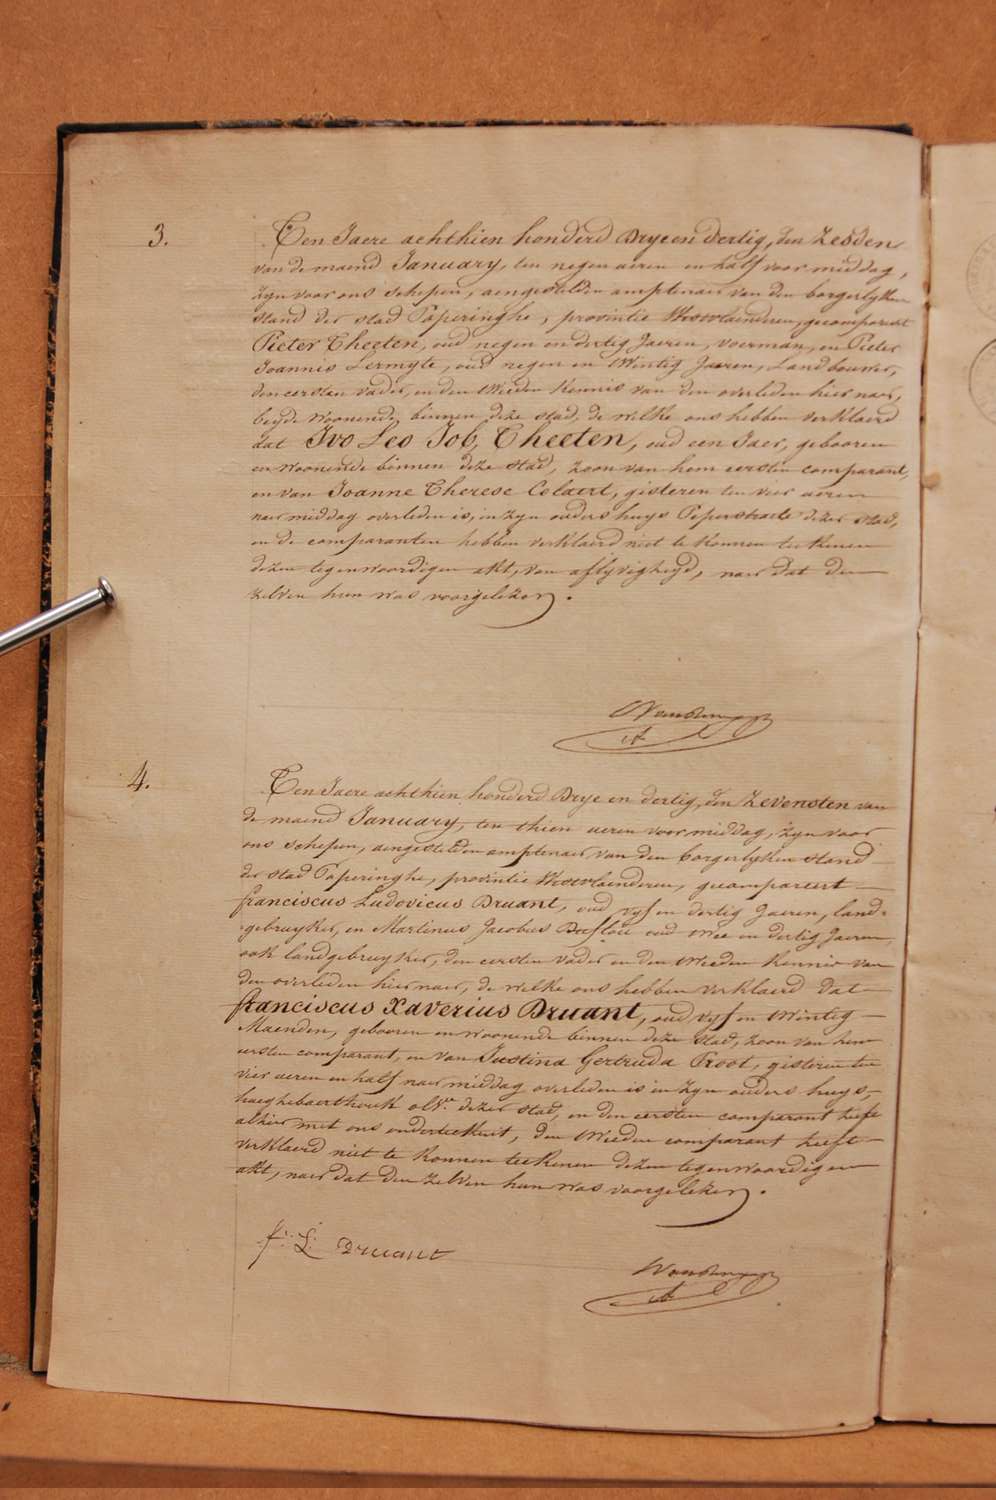 3.
Ten Jaere achthien honderd Drye en dertig, den Zesden
van de maend January, ten negen ueren en half voormiddag,
zyn voor ons schepen, aengestelden amptenaer van den borgerlyken
stand der stad Poperinghe, provintie Westvlaenderen, gecompareert
Pieter Theeten, oud negen en dertig Jaeren, voerman, en Pieter
Joannis Lermyte, oud negen en twintig Jaeren, Landbouwer,
den eersten vader, en den tweeden kennis van den overleden hier naer,
beyde woonende binnen deze stad, de welke ons hebben verklaerd
dat Ivo Leo Job Theeten, oud een Jaer, gebooren
en woonende binnen deze stad, zoon van hem eersten comparant,
en van Joanne Therese Colaert, gisteren ten vier ueren
naer middag overleden is, in zyn ouders huys Peperstraete dezer stad,
en de comparanten hebben verklaerd niet te konnen teekenen
dezen tegenwoordigen akt, van aflyvigheyd, naer dat den
zelven hun was voorgelezen.
4.
Ten Jaere achthien honderd Drye en dertig, den Zevensten van
de maend January, ten thien ueren voormiddag, zyn voor
ons schepen, aengestelden amptenaer van den borgerlyken stand
der stad Poperinghe, provintie Westvlaenderen, gecompareert
franciscus Ludovicus Druant, oud vyf en dertig Jaeren, land-
gebruyker, en Martinus Jacobus oud twee en dertig Jaeren,
ook landgebruyker, den eersten vader en den tweeden kennis van
den overleden hier naer, de welke ons hebben verklaerd dat
franciscus Xaverius Druant, oud vyf en twintig
Maenden, gebooren en woonende binnen deze stad, zoon van hem
eersten comparant, en van Justina Gertruda Proot, gisteren ten
vier ueren en half naer middag overleden is in zyn ouders huys,
dezer stad, en den eersten comparant heeft
alhier met ons onderteekent, den tweeden comparant heeft
verklaerd niet te konnen teekenen dezen tegenwoordigen
akt, naer dat den zelven hun was voorgelezen.
f. L. Druant